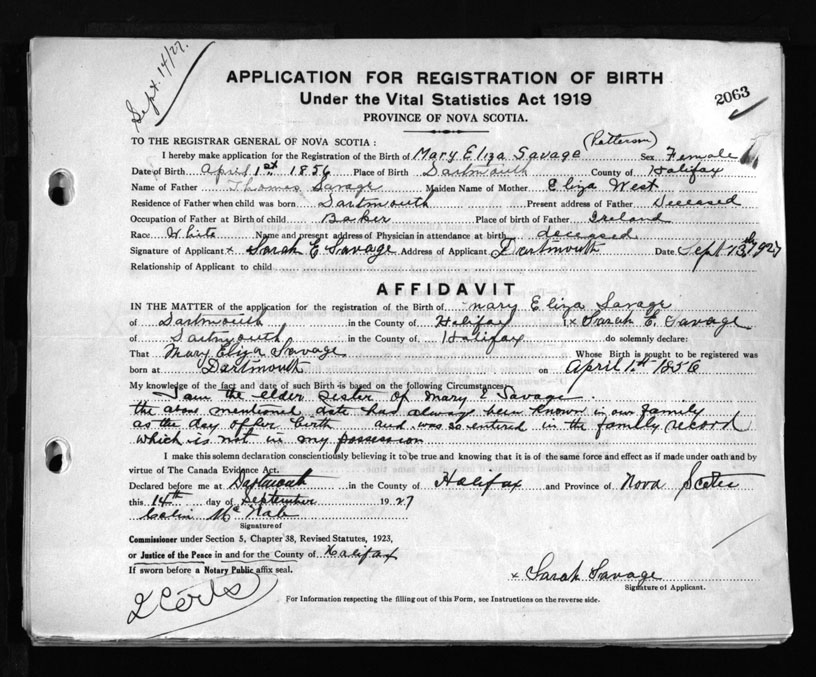 Sept 14/27.
APPLICATION FOR REGISTRATION OF BIRTH
Under the Vital Statistics Act 1919
2063
PROVINCE OF NOVA SCOTIA.
TO THE REGISTRAR GENERAL OF NOVA SCOTIA:
(Patterson)
I hereby make application for the Registration of the Birth of Mary Eliza Savage Sex Female
Date of Birth April 1st 1856 Place of Birth Dartmouth County of Halifax
Name of Father Thomas Savage Maiden Name of Mother Eliza West
Residence of Father when child was born Dartmouth Present address of Father Deceased
Occupation of Father at Birth of child Baker Place of birth of Father Ireland
Race White Name and present address of Physician in attendance at birth deceased
Signature of Applicant x Sarah E Savage Address of Applicant Dartmouth Date Sept 13th 1927
Relationship of Applicant to child
AFFIDAVIT
IN THE MATTER of the application for the registration of the Birth of Mary Eliza Savage
of Dartmouth in the County of Halifax I x Sarah E. Savage
of Dartmouth in the County of Halifax do solemnly declare:
That Mary Eliza Savage Whose Birth is sought to be registered was
born at Dartmouth on April 1st 1856
My knowledge of the fact and date of such Birth is based on the following Circumstances
I am the elder sister of Mary E Savage.
the above mentioned date has always been known in our family
as the day of her birth and was so entered in the family record
which is not in my possession
I make this solemn declaration conscientiously believing it to be true and knowing that it is of the same force and effect as if made under oath and by
virtue of The Canada Evidence Act.
Declared before me at Dartmouth in the County of Halifax and Province of Nova Scotia
this 14th day of September 1927
Colin McNab
Signature of
Commissioner under Section 5, Chapter 38, Revised Statutes, 1923,
or Justice of the Peace in and for the County of Halifax
If sworn before a Notary Public affix seal.
x Sarah Savage
Signature of Applicant.
2 Certs
For Information respecting the filling out of this Form, see Instructions on the reverse side.